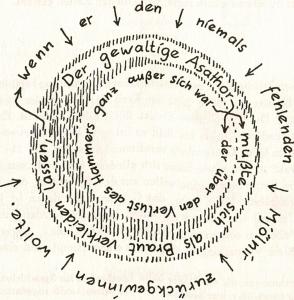 Der gewaltige Asathor
der über den Verlust des Hammers ganz außer sich war,
mußte sich als Braut verkleiden lassen,
wenn er den niemals fehlenden Mjölnir zurückgewinnen wollte.